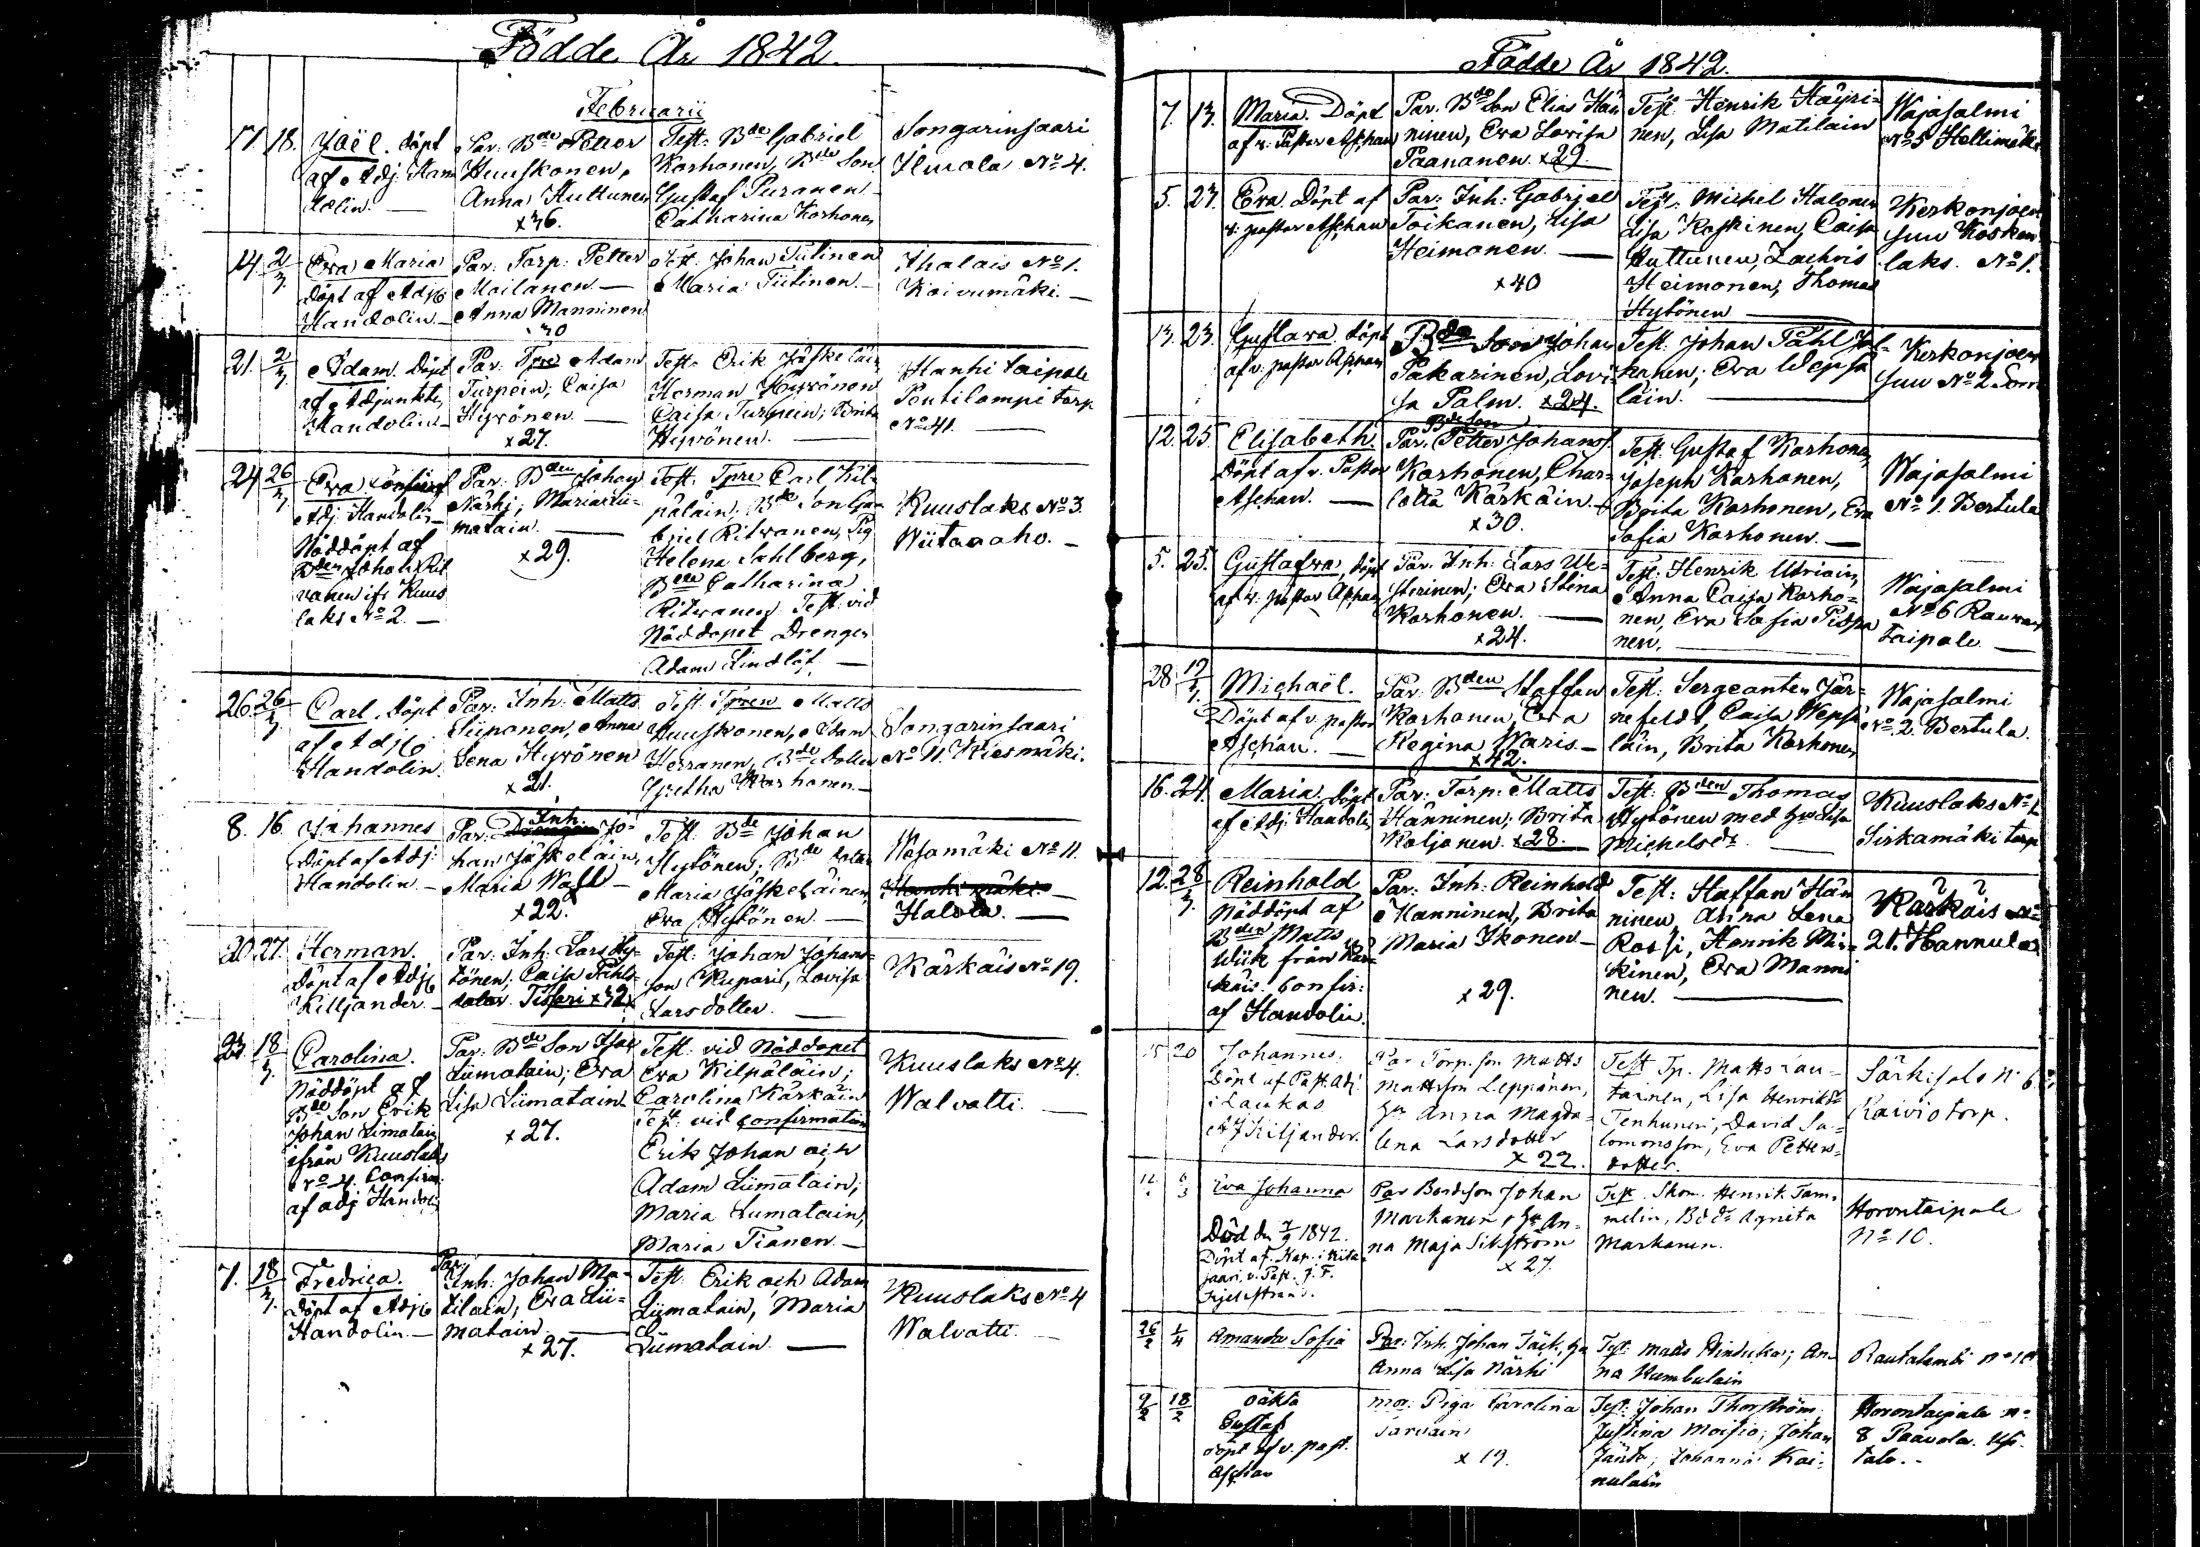 Födde År 1842.
Februarii
17. 18. Joël. Döpt af Adj. Handolin. —
Par: Bde Petter Huuskonen, Anna Huttunen x 36.
Test: Bde Gabriel Korhonen, Bde Son Gustaf Puranen Catharina Korhonen
Songarinsaari Ilmola No 4.
14. 2/3. Eva Maria Döpt af Adj. Handolin —
Par: Torp: Petter Moilanen — Anna Manninen
Test: Johan Tiitinen Maria Tiitinen —
Ihalais No 1. Koivumäki. —
21. 2/3. Adam. Döpt af Adjunkten Handolin —
Par: Tpre Adam Turpein, Caisa Hyvönen — x 27.
Test: Erik Jäskeläin, Herman Hyvönen Caisa Turpein; Brita Hyvönen. —
Hanhitaipale Pentilampi torp No 41. —
24. 26/3. Eva Adj. Handolin — Nöddöpt af Bden Johan Ritvanen ifr. Kuuslaks No 2. —
Par: Bden Johan Närhj, Maria Liimatain. — x 29.
Test: Tpre Carl Kilpäläin. Bde Son Gabriel Ritvanen, Pig Helena Sahlberg, Bde Catharina Ritvanen Test. vid Nöddopet Drengen Adam Lindlöf. —
Kuuslaks No 3. Wiitaaho. —
26. 26/3. Carl. Döpt af Adj. Handolin.
Par: Inh: Matts Siiponen, Anna Lena Hyvönen x 21.
Test: Tpren Matts Huuskonen, Adam Herranen, Bde dotter Gretha Korhonen. —
Songarinsaari No 11. Kiesmäki.
8. 16. Johannes Döpt af Adj: Handolin —
Par: Inh Johan Jäskeläin, Maria Wall — x 22.
Test. Bde Johan Hytönen; Bde dotter Maria Jäskeläinen, Eva Hytönen. —
Wesamäki No 11. Halola. —
20. 27. Herman. Döpt af Adj. Killjander. —
Par: Inh: Lars Hytönen; Caisa x 42
Test: Johan Johansson Kupari, Lovisa Larsdotter. —
Kärkäis No 19.
23. 18/3. Carolina. Nöddöpt af Bde Son Erik Johan Limatain ifrån Kuuslaks No 4. Confirm: af adj Handolin
Par: Bde Son Isak Liimatain; Eva Lisa Liimatain x 27.
Test: vid Nöddopet Eva Kilpäläin; Carolina Kärkäin Test: vid confirmation Erik Johan och Adam Liimatain; Maria Liimatain, Maria Tianen. —
Kuuslaks No 4. Walvatti. —
7. 18/3. Fredrica. Döpt af Adj. Handolin —
Par: Inh: Johan Matilain; Eva Liimatain — x 27.
Test: Erik och Adam Liimatain, Maria Liimatain. —
Kuuslaks No 4 Walvatti. —
Födde År 1842.
7. 13. Maria. Döpt af v. Pastor Aschan
Par. Bde Son Elias Hänninen, Eva Lovisa Paananen. x 29.
Test: Henrik Häyrinen, Lisa Matilain
Wajasalmi No 5
5. 23. Eva. Döpt af v. pastor Aschan
Par: Inh: Gabriel Toikanen, Lisa Heimonen. — x 40
Test: Michel Halonen Lisa Koskinen, Caisa Huttunen, Zachris Heimonen, Thomas Hytönen —
Kerkonjoensuu Koskenlaks. No 1.
13. 23. Gustava. döpt af v. pastor Aschan
Bde Son Johan Pakarinen, Lovisa Palm. x 24.
Test: Johan Påhl Jalkanen; Eva Wepsäläin. —
Kerkonjoensuu No 2
12. 25. Elisabeth. Döpt af v. Pastor Aschan. —
Par. Bde Son Petter Johanss. Korhonen, Charlotta Kärkäin. — x 30.
Test: Gustaf Korhonen, Joseph Korhonen, Brita Korhonen, Eva Sofia Korhonen. —
Wajasalmi No 1. Bertula
5. 25. Gustafva, döpt af v. pastor Aschan
Par: Inh: Lars Westerinen; Eva Stina Korhonen. — x 24.
Test: Henrik Utriain, Anna Caisa Korhonen, Eva Sofia Piispanen. —
Wajasalmi No 6 Taipale —
28. 12/3. Michaël. Döpt af v. pastor Aschan. —
Par: Bden Staffan Korhonen, Eva Regina Waris — x 42.
Test: Sergeanten Järnefeldt, Caisa Wepsäläin, Brita Korhonen
Wajasalmi No 2. Bertula.
16. 24. Maria. döpt af Adj: Handolin
Par: Torp: Matts Hänninen; Brita Koljonen. x 28.
Test: Bden Thomas Hytönen med hu Lisa Michelsdr —
Kuuslaks No 1 Sirkamäki torp
12. 28/3. Reinhold Nöddöpt af Bden Mats Wiik från Kärkäis. Confir: af Handolin.
Par: Inh: Reinhold Manninen, Brita Maria Ikonen — x 29.
Test: Staffan Hänninen, Anna Lena Rossi, Henrik Minkinen, Eva Manninen. —
Kärkäis No 21. Hannula
15 20 Johannes. Döpt af Past. Adj. i Laukas A J Kiljander.
Par Torp. son Matts Mattsson Leppänen, hu Anna Magdalena Larsdotter x 22.
Test Tp. Matts Lautainen, Lisa Henriksdr Tenhunen, David Salomonsson, Eva Pettersdotter.
Särkisalo No 6. Raivio torp.
12. 6/3 Eva Johanna Död den 7/9 1842. Döpt af Kap. i v. Past. J. F.
Par Bondeson Johan Markanen, hu Anna Maja Silfström x 27
Test. Skom. Henrik Tammelin, Bddr Agneta Markanen.
Horontaipale No 10.
26/2 1/4 Amanda Sofia
Par: Inh. Johan Jäck, hu Anna Lisa Närhi
Test: Mats Hinduka; Anna Kumbulain
Rautalambi No 10
9/2 18/2 oäkta Gustaf döpt af v. past. Aschan
mor. Piga Carolina Sarvain x 19.
Test: Johan Thorström. Justina Moisio; Johan Jäntö; Johanna Kainulain
Horontaipale No 8 Paavola.